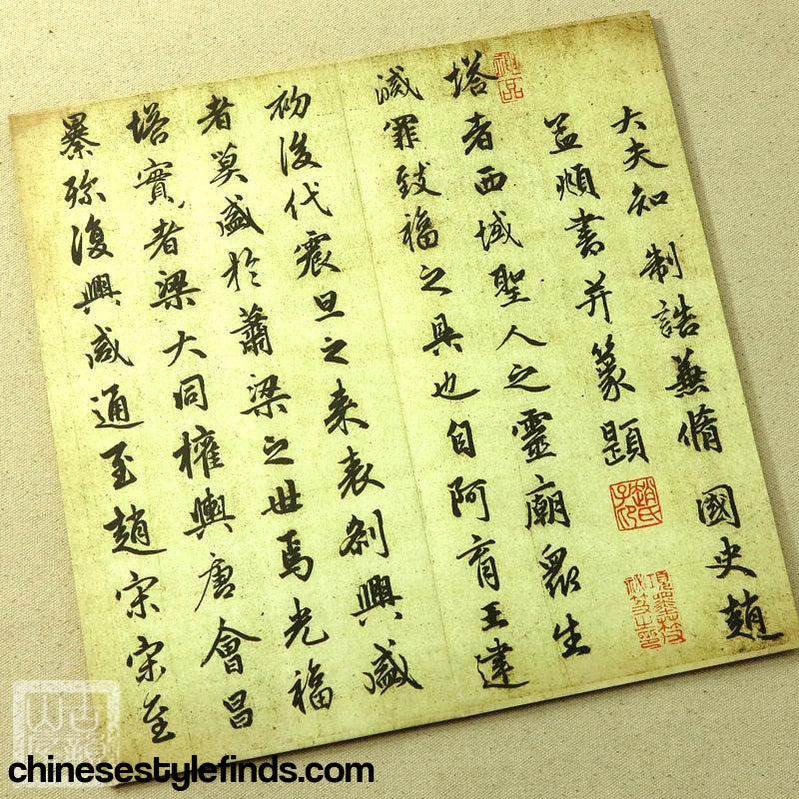 大夫知 制誥兼脩 國史趙
孟頫書并篆題
趙氏子昂
塔者西域聖人之靈廟眾生
滅罪致福之具也自阿育王建
初後代震旦之来表刹興盛
者莫盛於蕭梁之世焉光福
塔實者梁大同權輿唐會昌
暴殄復興咸通至趙宋宋至
chinesestylefinds.com